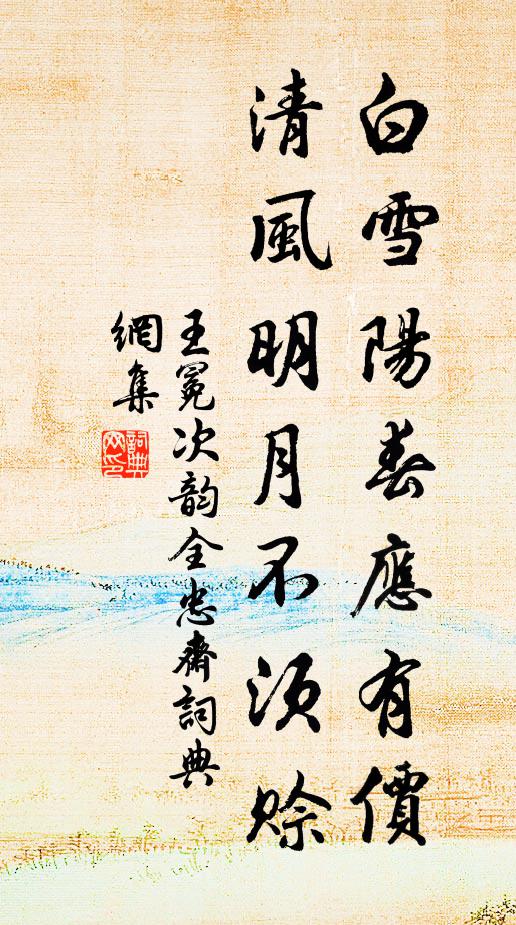 白雪陽春應有價
清風明月不須賒
王冕次韵全忠齋詞典
網集
詞典
网印